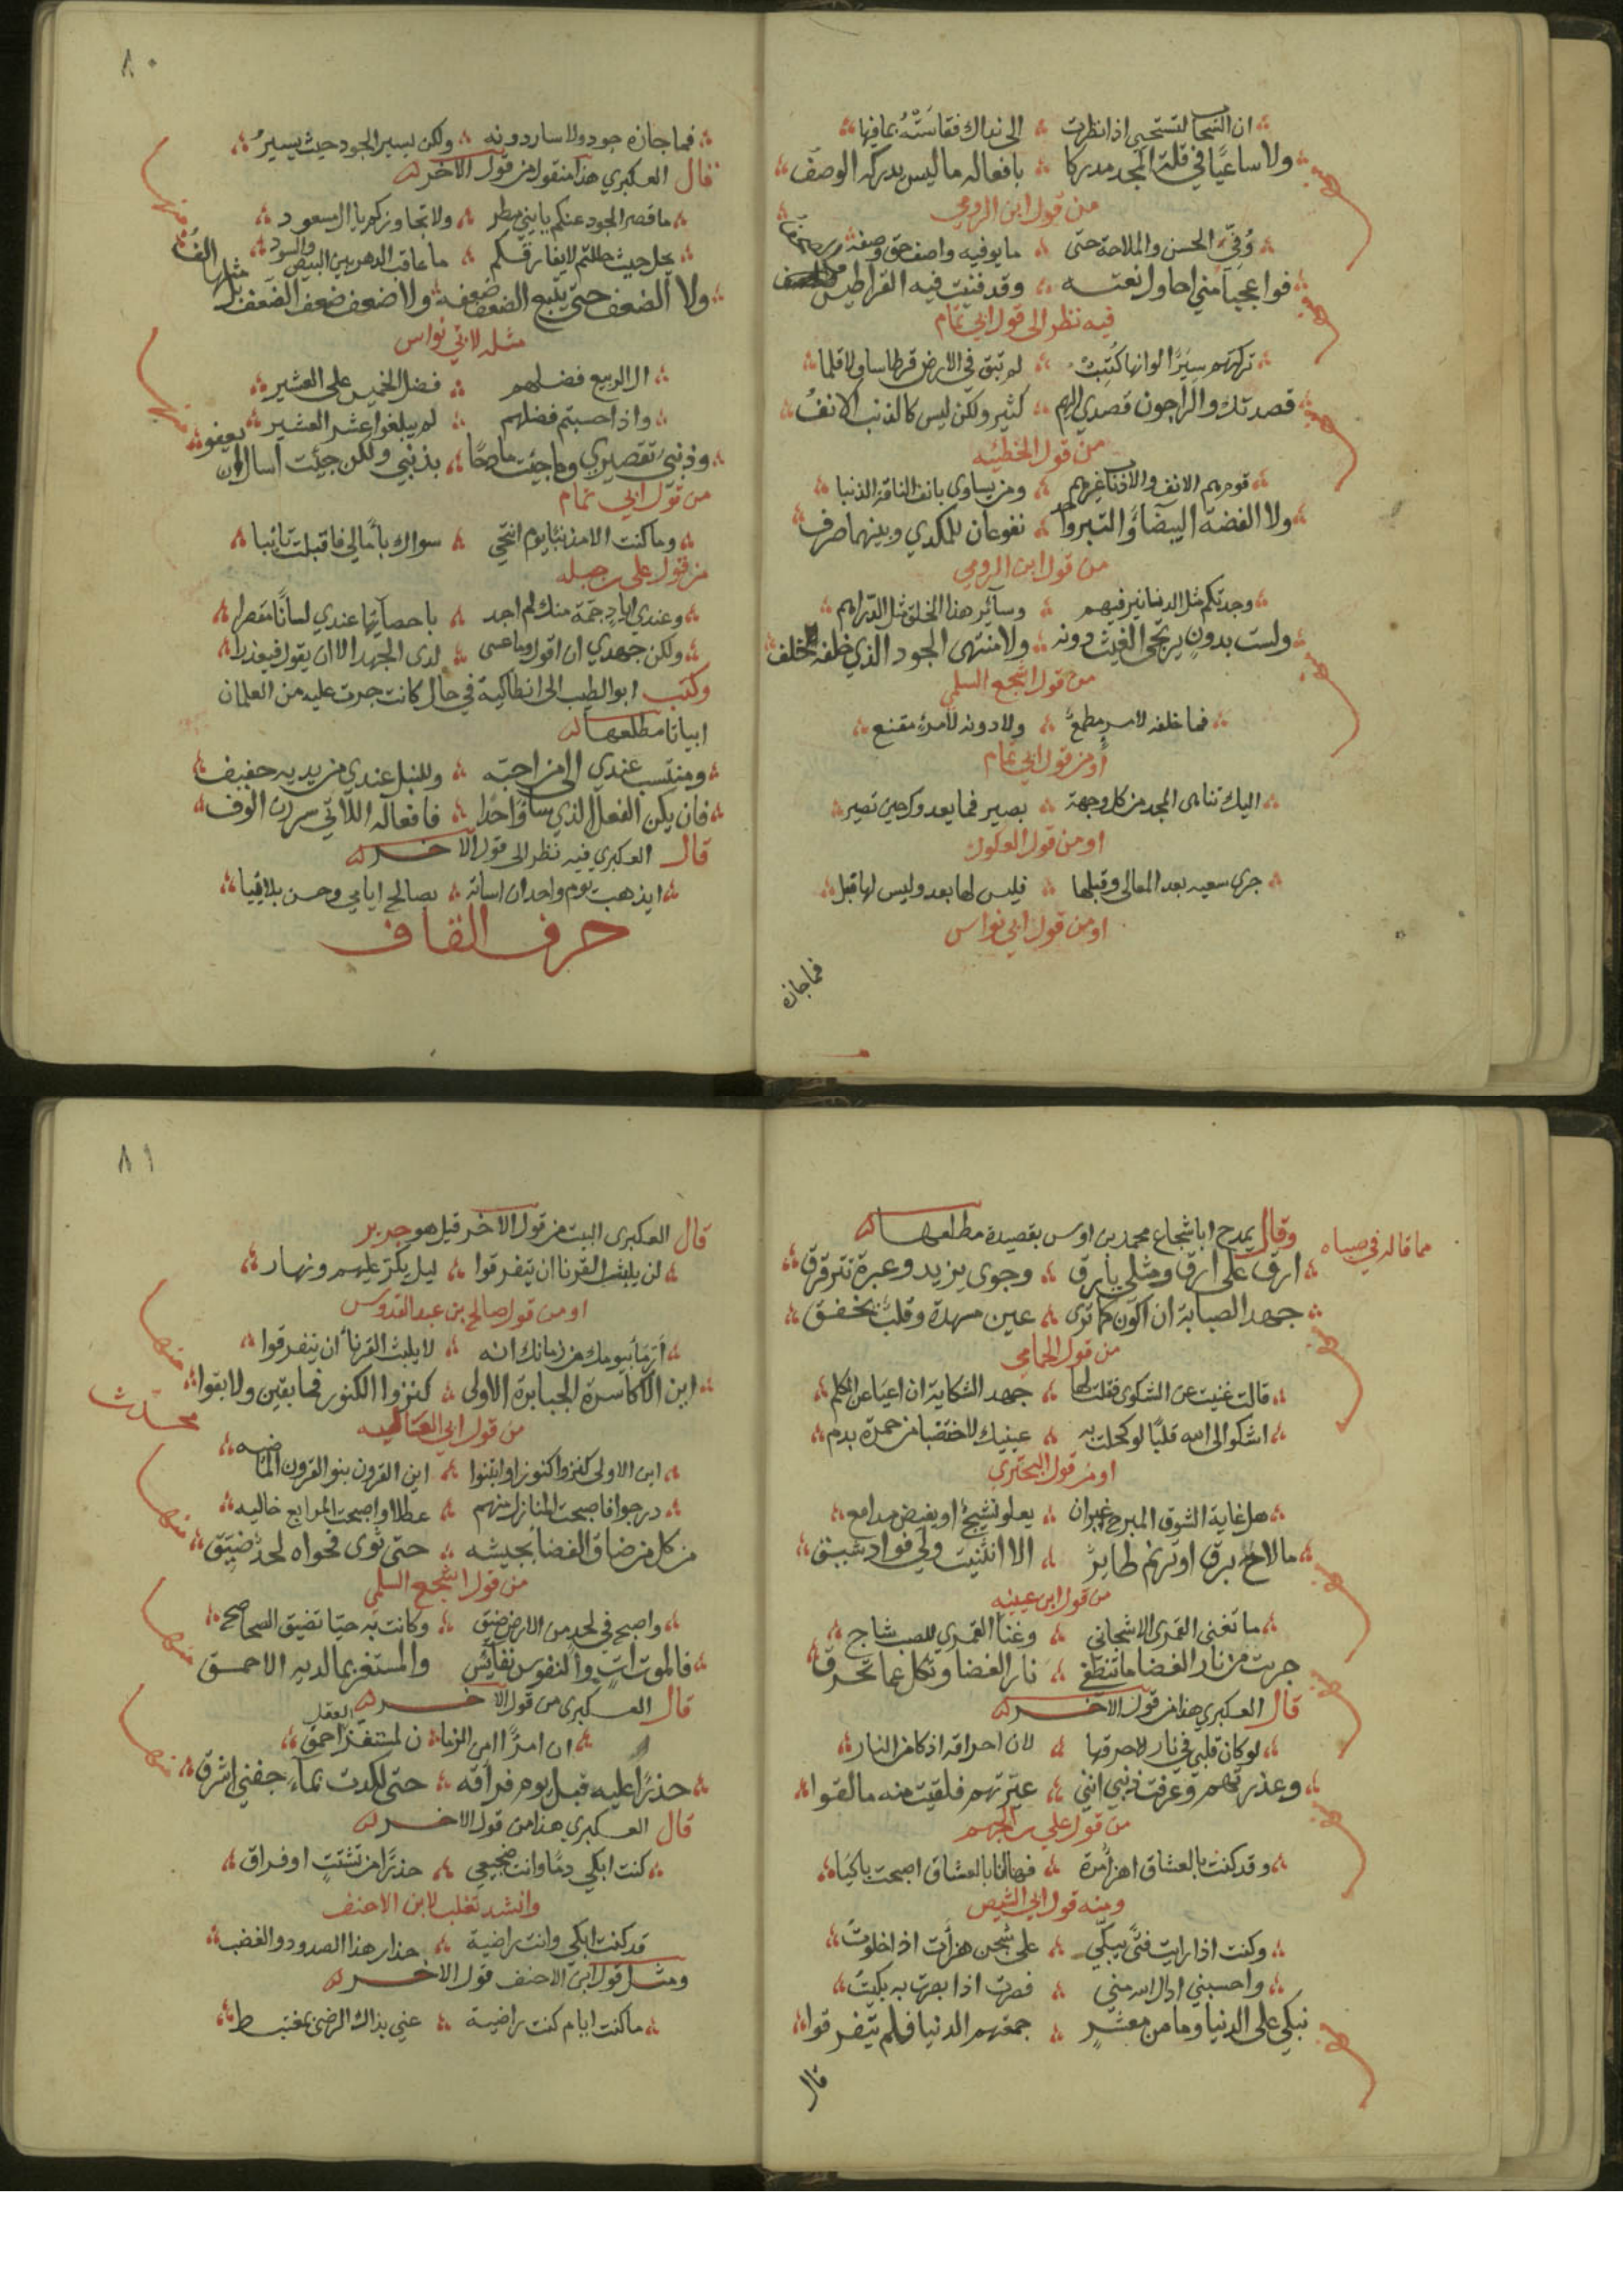 ان السحا لتستحيي اذا نظرت ۞ الى نداك فقاسته بما فيها
ولا ساعيًا في قلة المجد مدركا ۞ بافعاله ما ليس يدركه الوصف
من قول ابن الرومي
وُفّي الحسن والملاحة حتى ۞ ما يوفيه واصف حق وصفه
فواعجبًا مني احاول نعته ۞ وقد فنيت فيه القراطيس
فيه نظر الى قول ابي تمام
تركتهم سيرًا لو انها كتبت ۞ لم تبق في الارض قرطاسا ولا قلما
قصدتك والراجون قصدي اليهم ۞ كثير ولكن ليس كالذنب الانف
من قول الحطيئه
قوم هم الانف والاذناب غيرهم ۞ ومن يساوي بانف الناقة الذنبا
ولا الفضة البيضاء والتبر واحد ۞ نفوعان للمكدي وبينهما صرف
من قول ابن الرومي
وجدتكم مثل الدنانير فيهم ۞ وسائر هذا الخلق مثل الدراهم
ولست بدونٍ يرتجى الغيث دونه ۞ ولا منتهى الجود الذي خلفه خلف
من قول اشجع السلمي
فما خلفه لامرءٍ مطمع ۞ ولا دونه لامرءٍ مقنع
او من قول ابي تمام
اليك تناهى المجد من كل وجهة ۞ يصير فما يعدوك حين تصير
او من قول العكوك
جرى سعيه بعد المعالى وقبلها ۞ فليس لها بعد وليس لها قبل
او من قول ابي نواس
فما جازه
٨٠
فما جازه جود ولا سار دونه ۞ ولكن يسير الجود حيث يسير
قال العكبري هذا منقول من قول الآخر
ما قصر الجود عنكم يا بني مطر ۞ ولا تجاوزكم يا ال مسعود
يحل حيث حللتم لا يفارقكم ۞ ما عاقب الدهر بين البيض والسود
ولا الضعف حتى يتبع الضعف ضعفه ۞ ولا ضعف ضعف الضعف بل مثله الف
منها
مثله لابي نواس
ال الربيع فضلهم ۞ فضل الخميس على العشير
واذا حسبتم فضلهم ۞ لم يبلغوا عشر العشير
وذنبي تقصيري وما جئت مادحًا ۞ بذنبي ولكن جئت اسال ان يعفو
منها
من قول ابي تمام
وما كنت الا مذنبًا يوم انتحي ۞ سواك بآمالي فاقبلت تائبا
من قول علي بن جبله
وعندي اياد جمة منك لم اجد ۞ باحصائها عندي لسانًا مقصرا
ولكن جهدي ان اقول وما عسى ۞ لدى الجهد الا ان يقول فيعذرا
وكتب ابو الطيب الى انطاكية في حال كانت جرت عليه من الغلمان
ابياتا مطلعها
ومنتسب عندي الى من احبه ۞ وللنبل عندي من يديه حفيف
فان يكن الفعل الذي ساء واحدًا ۞ فافعاله اللاتي سررن الوف
قال العكبري فيه نظر الى قول الآخر
ايذهب يوم واحد ان اساته ۞ بصالح ايامي وحسن بلائيا
حرف القاف
مما قاله في صباه
وقال يمدح ابا شجاع محمد بن اوس بقصيدة مطلعها
ارق على ارق ومثلي يأرق ۞ وجوى يزيد وعبرة تترقرق
جهد الصبابة ان اكون كما ترى ۞ عين مسهدة وقلب يخفق
من قول الحمامي
قالت غنيت عن الشكوى فقلت لها ۞ جهد الشكاية ان اعيا عن الكلم
اشكو الى الله قلبًا لو كحلت به ۞ عينيك لاختضبا من حمرة بدم
او من قول البحتري
هل غاية الشوق المبرح غير ان ۞ يعلو نشيج او يفيض مدامع
ما لاح برق او ترنم طائر ۞ الا انثنيت ولي فواد شيق
من قول ابن عيينه
ما تغنى القمري الا شجاني ۞ وغنا القمري للصب شاج
جربت من نار الغضا ما تنطفي ۞ نار الغضا وتكل عما تحرق
قال العكبري هذا من قول الآخر
لو كان قلبي في نار لاحرقها ۞ لان احراقه اذكى من النار
وعذرتهم وعرفت ذنبي انني ۞ عيرتهم فلقيت منه ما لقوا
من قول علي بن الجهم
وقد كنت بالعشاق اهزا مرة ۞ فها انا بالعشاق اصبحت باكيا
ومنه قول ابي الشيص
وكنت اذا رايت فتى يبكي ۞ على شجن هزات اذا خلوت
واحسبني ادال الله مني ۞ فصرت اذا بصرت به بكيت
نبكي على الدنيا وما من معشر ۞ جمعتهم الدنيا فلم يتفرقوا
قال
٨١
قال العكبرى البيت من قول الآخر قيل هو جرير
لن يلبث القرنا ان يتفرقوا ۞ ليل يكر عليهم ونهار
او من قول صالح بن عبد القدوس
لا يلبث القرنا ان يتفرقوا
اين الاكاسرة الجبابرة الاولى ۞ كنزوا الكنوز فما بقين ولا بقوا
منها
محدث
من قول ابي العتاهيه
اين الاولى كنزوا كنوزا وابتنوا ۞ اين القرون بنو القرون الماضيه
درجوا فاصبحت المنازل منهم ۞ عطلا واصبحت المرابع خاليه
من كل من ضاق الفضا بجيشه ۞ حتى ثوى فحواه لحد ضيق
منها
من قول اشجع السلمي
واصبح في لحد من الارض ضيق ۞ وكانت به حيا تضيق الصحاصح
فالموت آتٍ والنفوس نفائس ۞ والمستغر بما لديه الاحمق
منها
قال العكبرى من قول الآخر
ان امرًا امن الزمان لمستغز العقل احمق
حذرًا عليه قبل يوم فراقه ۞ حتى لكدت بماء جفني اشرق
منها
قال العكبري هذا من قول الآخر
كنت ابكي دمًا وانت ضجيعي ۞ حذرًا من تشتت او فراق
وانشد ثعلب لابن الاحنف
قد كنت ابكي وانت راضية ۞ حذار هذا الصدود والغضب
ومثل قول ابن الاحنف قول الآخر
ما كنت ايام كنت راضية ۞ عني بذاك الرضى بمغتبط